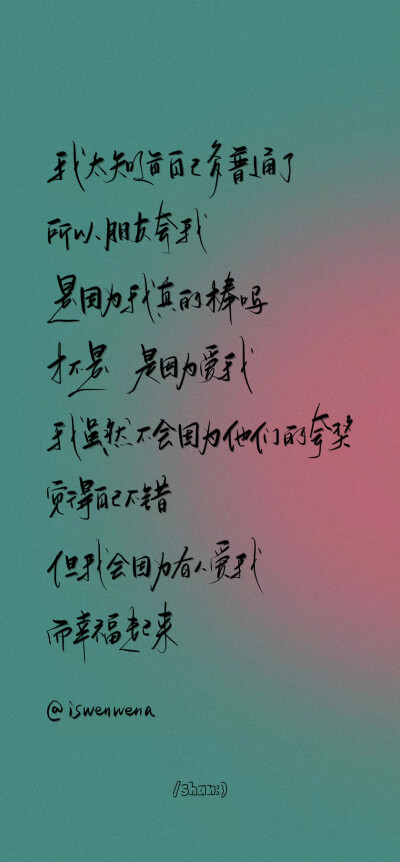 我太知道自己多普通了
所以朋友夸我
是因为我真的棒吗
才不是 是因为爱我
我虽然不会因为他们的夸奖
觉得自己不错
但我会因为有人爱我
而幸福起来
@iswenwena
/shun:)